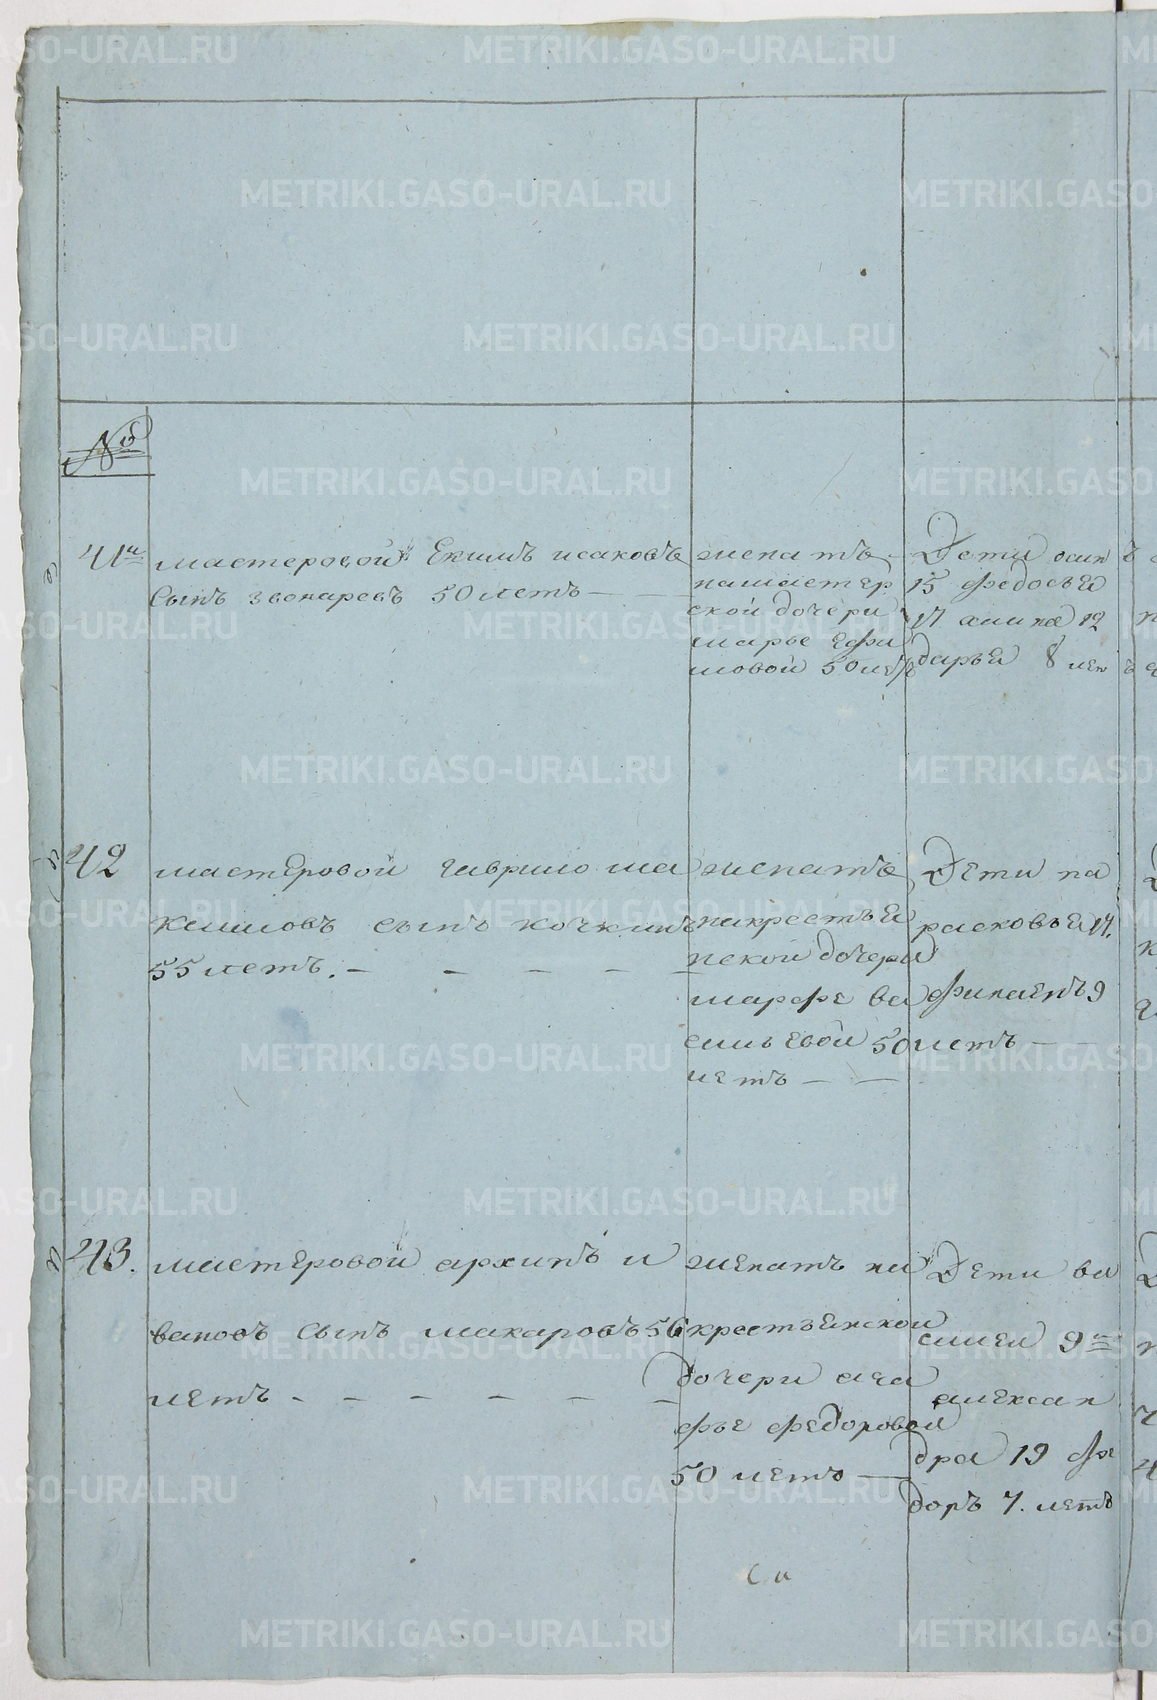 №
41й мастеровой Екимъ исаковъ
сынъ звонаревъ 50 летъ —
женатъ
намастер
ской дочери
марье ефи
мовой 50 летъ
Дети осипъ
15 федосья
17 анна 12
дарья 8 летъ
42 мастеровой гаврило ма
ксимовъ сынъ кочкинъ
55 летъ. — — — —
женатъ
накрестья
нской дочери
марфе ва
сильевой 50
летъ — —
Дети па
расковья 17.
9
летъ — —
43. мастеровой архипъ и
вановъ сынъ макаровъ 56
летъ — — — — — —
женатъ на
крестьянской
дочери ага
фье федоровой
50 летъ —
Дети ва
силей 9й
алексан
дра 19 фе
доръ 7. летъ
METRIKI.GASO-URAL.RU